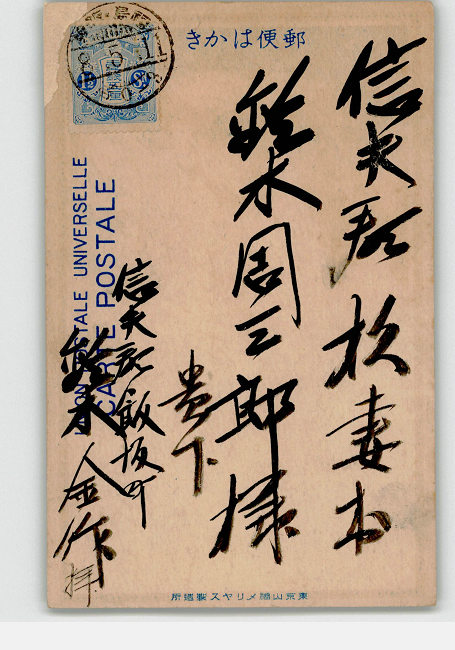 郵便はかき
信夫郡 杉妻村
鈴木周三郎様
貴下
信夫郡飯坂町
鈴木金作
拝
UNION POSTALE UNIVERSELLE
CARTE POSTALE
8.5.11
東京山脇メリヤス製造所